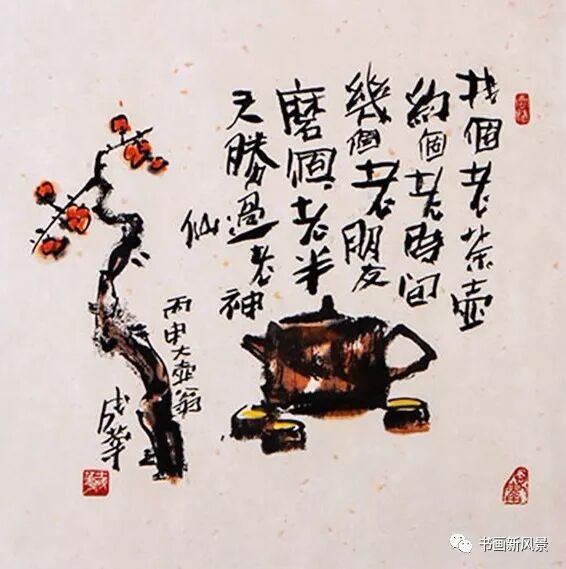 找個老茶壺
約個老時間
幾個老朋友
磨個老半
天勝過老神
仙
丙申大壺翁
书画新风景